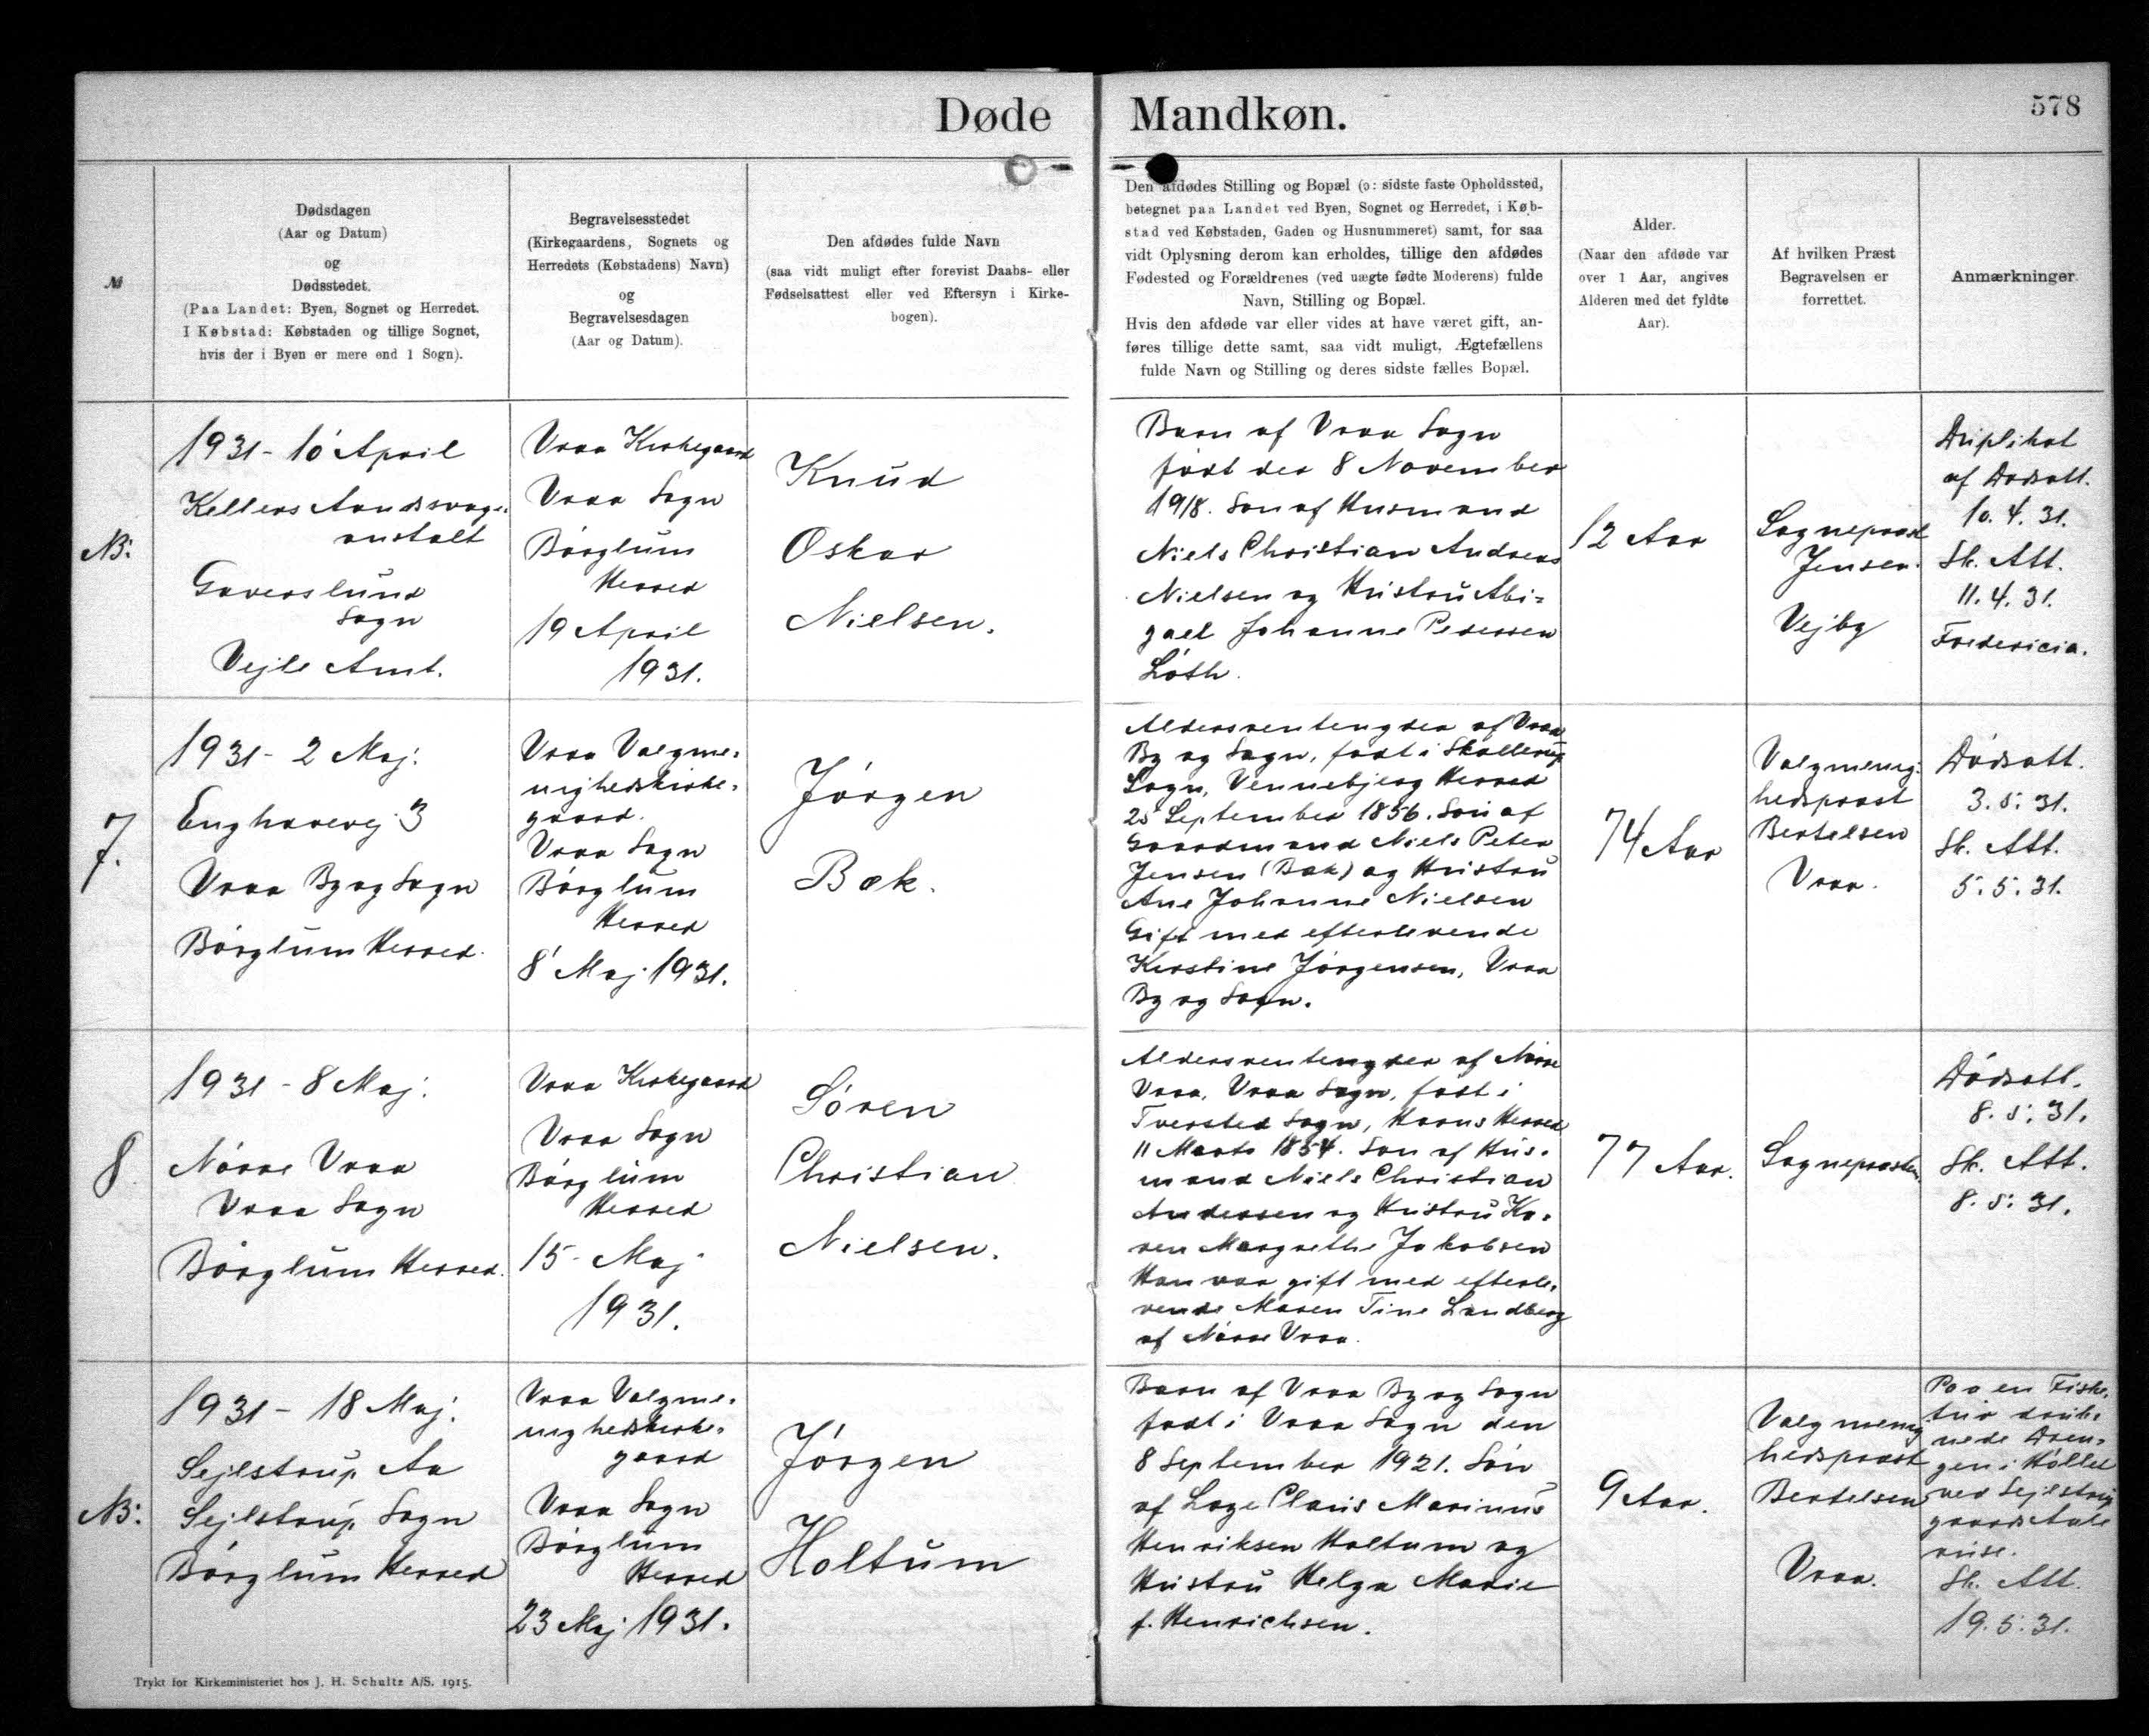 Døde Mandkøn.
578
№
Dødsdagen
(Aar og Datum)
og
Dødsstedet.
(Paa Landet: Byen, Sognet og Herredet.
I Købstad: Købstaden og tillige Sognet,
hvis der i Byen er mere end 1 Sogn).
Begravelsesstedet
(Kirkegaardens, Sognets og
Herredets (Købstadens) Navn)
og
Begravelsesdagen
(Aar og Datum).
Den afdødes fulde Navn
(saa vidt muligt efter forevist Daabs- eller
Fødselsattest eller ved Eftersyn i Kirke-
bogen).
Den afdødes Stilling og Bopæl (ɔ: sidste faste Opholdssted,
betegnet paa Landet ved Byen, Sognet og Herredet, i Køb-
stad ved Købstaden, Gaden og Husnummeret) samt, for saa
vidt Oplysning derom kan erholdes, tillige den afdødes
Fødested og Forældrenes (ved uægte fødte Moderens) fulde
Navn, Stilling og Bopæl.
Hvis den afdøde var eller vides at have været gift, an-
føres tillige dette samt, saa vidt muligt, Ægtefællens
fulde Navn og Stilling og deres sidste fælles Bopæl.
Alder.
(Naar den afdøde var
over 1 Aar, angives
Alderen med det fyldte
Aar).
Af hvilken Præst
Begravelsen er
forrettet.
Anmærkninger.
NB:
1931 - 10 April
Kellers Aandssvage-
anstalt
Gaverslund
Sogn
Vejle Amt.
Vraa Kirkegaard
Vraa Sogn
Børglum
Herred
19 April
1931.
Knud
Oskar
Nielsen.
Barn af Vraa Sogn
født den 8 November
1918. Søn af Husmand
Niels Christian Andreas
Nielsen og Hustru Abi=
gael Johanne Pedersen
Løth.
12 Aar
Sognepræst
Jensen.
Vejby
Duplikat
af Dødsatt.
10. 4. 31.
Sk. Att.
11. 4. 31.
Fredericia.
7.
1931 - 2 Maj.
Enghavevej 3
Vraa By og Sogn
Børglum Herred.
Vraa Valgme-
nighedskirke-
gaard.
Vraa Sogn
Børglum
Herred
8 Maj 1931.
Jørgen
Bæk.
Aldersrentenyder af Vraa
By og Sogn, født i Skallerup
Sogn, Vennebjerg Herred
25 September 1856. Søn af
Gaardmand Niels Peter
Jensen (Bæk) og Hustru
Ane Johanne Nielsen
Gift med efterlevende
Kirstine Jørgensen, Vraa
By og Sogn.
74 Aar
Valgmenig-
hedspræst
Bertelsen
Vraa.
Dødsatt.
3. 5. 31.
Sk. Att.
5. 5. 31.
8
1931 - 8 Maj.
Nørre Vraa
Vraa Sogn
Børglum Herred.
Vraa Kirkegaard
Vraa Sogn
Børglum
Herred
15 - Maj
1931.
Søren
Christian
Nielsen.
Aldersrentenyder af Nørre
Vraa, Vraa Sogn, født i
Tversted Sogn, Horns Herred
11 Marts 1854. Søn af Hus-
mand Niels Christian
Andersen og Hustru Ka-
ren Margrethe Jakobsen
Han var gift med efterle-
vende Maren Tine Landberg
af Nørre Vraa.
77 Aar.
Sognepræsten.
Dødsatt.
8. 5. 31.
Sk. Att.
8. 5. 31.
NB:
1931 - 18 Maj.
Sejlstrup Aa
Sejlstrup Sogn
Børglum Herred
Vraa Valgme-
nighedskirke-
gaard
Vraa Sogn
Børglum
Herred
23 Maj 1931.
Jørgen
Holtum
Barn af Vraa By og Sogn
født i Vraa Sogn den
8 September 1921. Søn
af Lage Claus Marinus
Henriksen Holtum og
Hustru Helga Marie
f. Henrichsen.
9 Aar.
Valgmenig
hedspræst
Bertelsen
Vraa.
Paa en Fiske-
tur druk-
nede Dren-
gen i Høllet
ved Sejlstrup
gaards
Sk. Att.
19. 5. 31.
Trykt for Kirkeministeriet hos J. H. Schultz A/S. 1915.